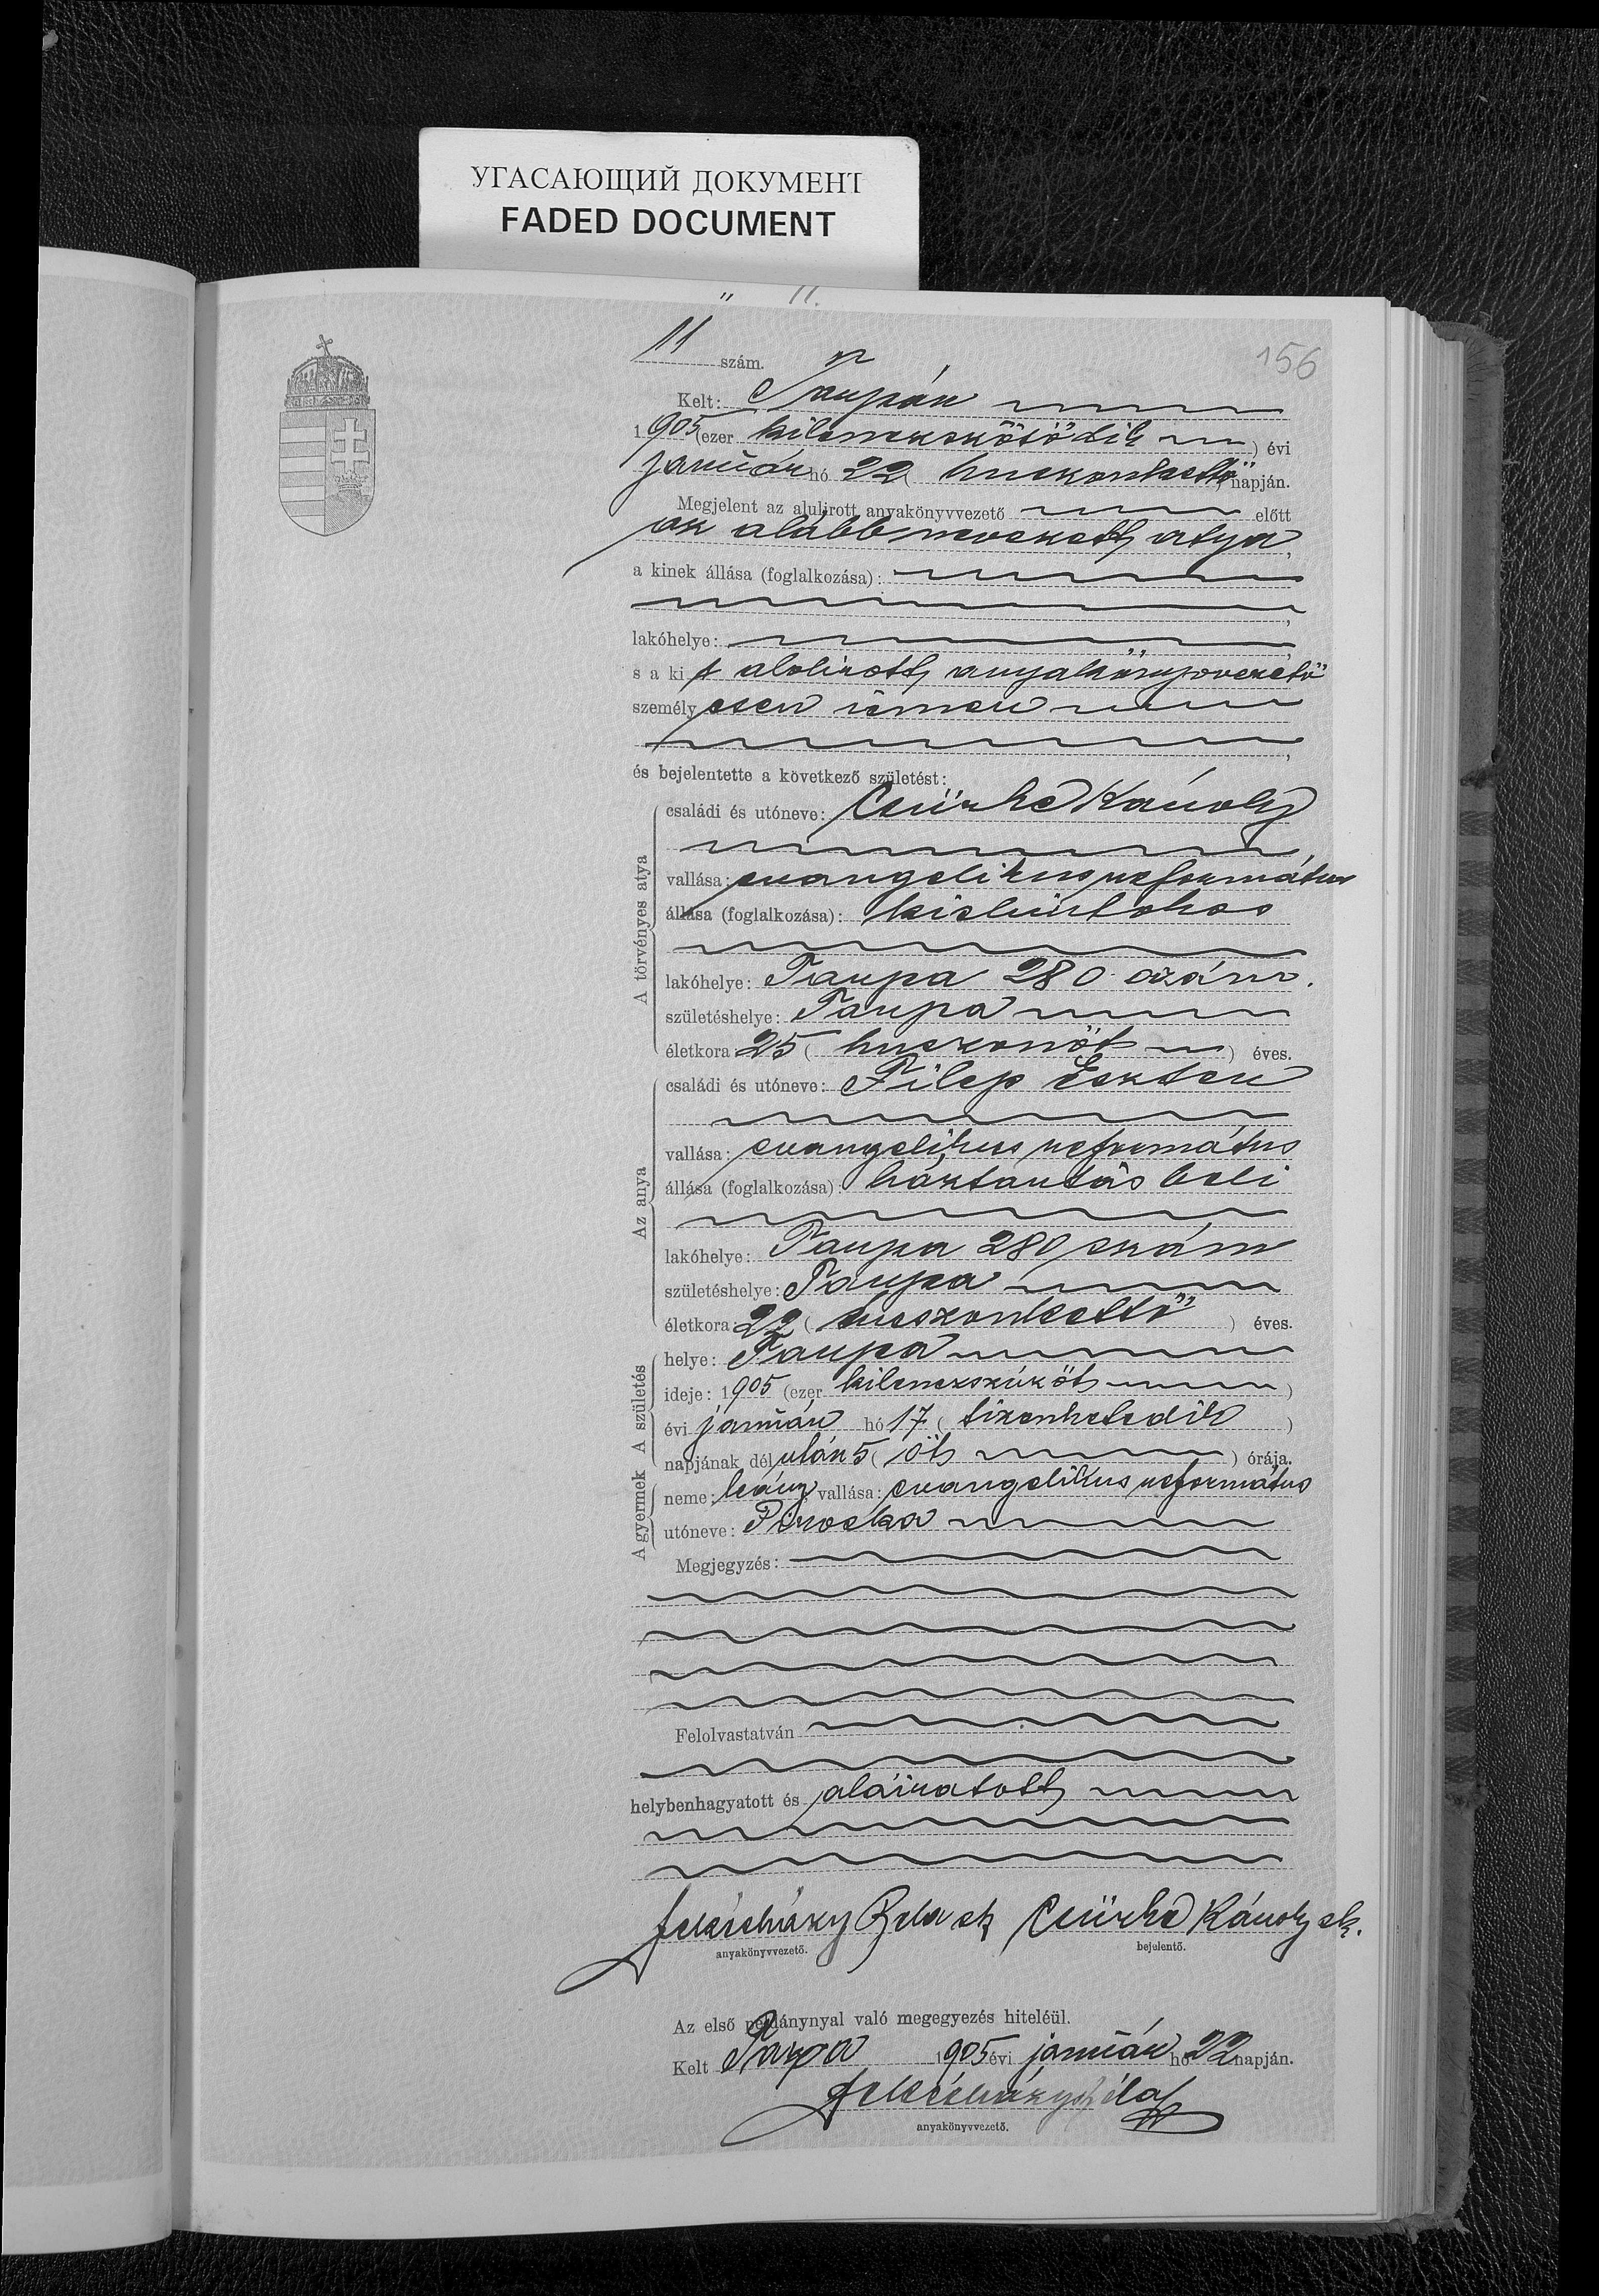 УГАСАЮЩИЙ ДОКУМЕНТ
FADED DOCUMENT
" 11.
156
11 szám.
Kelt: Tarpán
1905 (ezer kilencszötödik) évi
január hó 22 (huszonkettő) napján.
Megjelent az alulirott anyakönyvvezető előtt
az alább nevezett atya,
a kinek állása (foglalkozása):
lakóhelye:
s a kit alólirott anyakönyvvezető
személyesen ismer
és bejelentette a következő születést:
A törvényes atya
családi és utóneve: Csürke Károly
vallása: evangelikus református
állása (foglalkozása): kisbirtokos
lakóhelye: Tarpa 280 szám.
születéshelye: Tarpa
életkora: 25 (huszonöt) éves.
Az anya
családi és utóneve: Filep Eszter
vallása: evangelikus református
állása (foglalkozása): háztartásbeli
lakóhelye: Tarpa 280 szám
születéshelye: Tarpa
életkora: 22 (huszonkettő) éves.
A születés
helye: Tarpa
ideje: 1905 (ezer kilenczszázöt)
évi január hó 17 (tizenhetedik)
napjának délután 5 (öt) órája.
A gyermek
neme: leány, vallása: evangelikus református
utóneve: Piroska
Megjegyzés:
Felolvastatván
helybenhagyatott és aláiratott
Béla sk Csürke Károly sk.
anyakönyvvezető. bejelentő.
Az első példánynyal való megegyezés hiteléül.
Kelt Tarpa 1905 évi január hó 22 napján.
Béla
anyakönyvvezető.